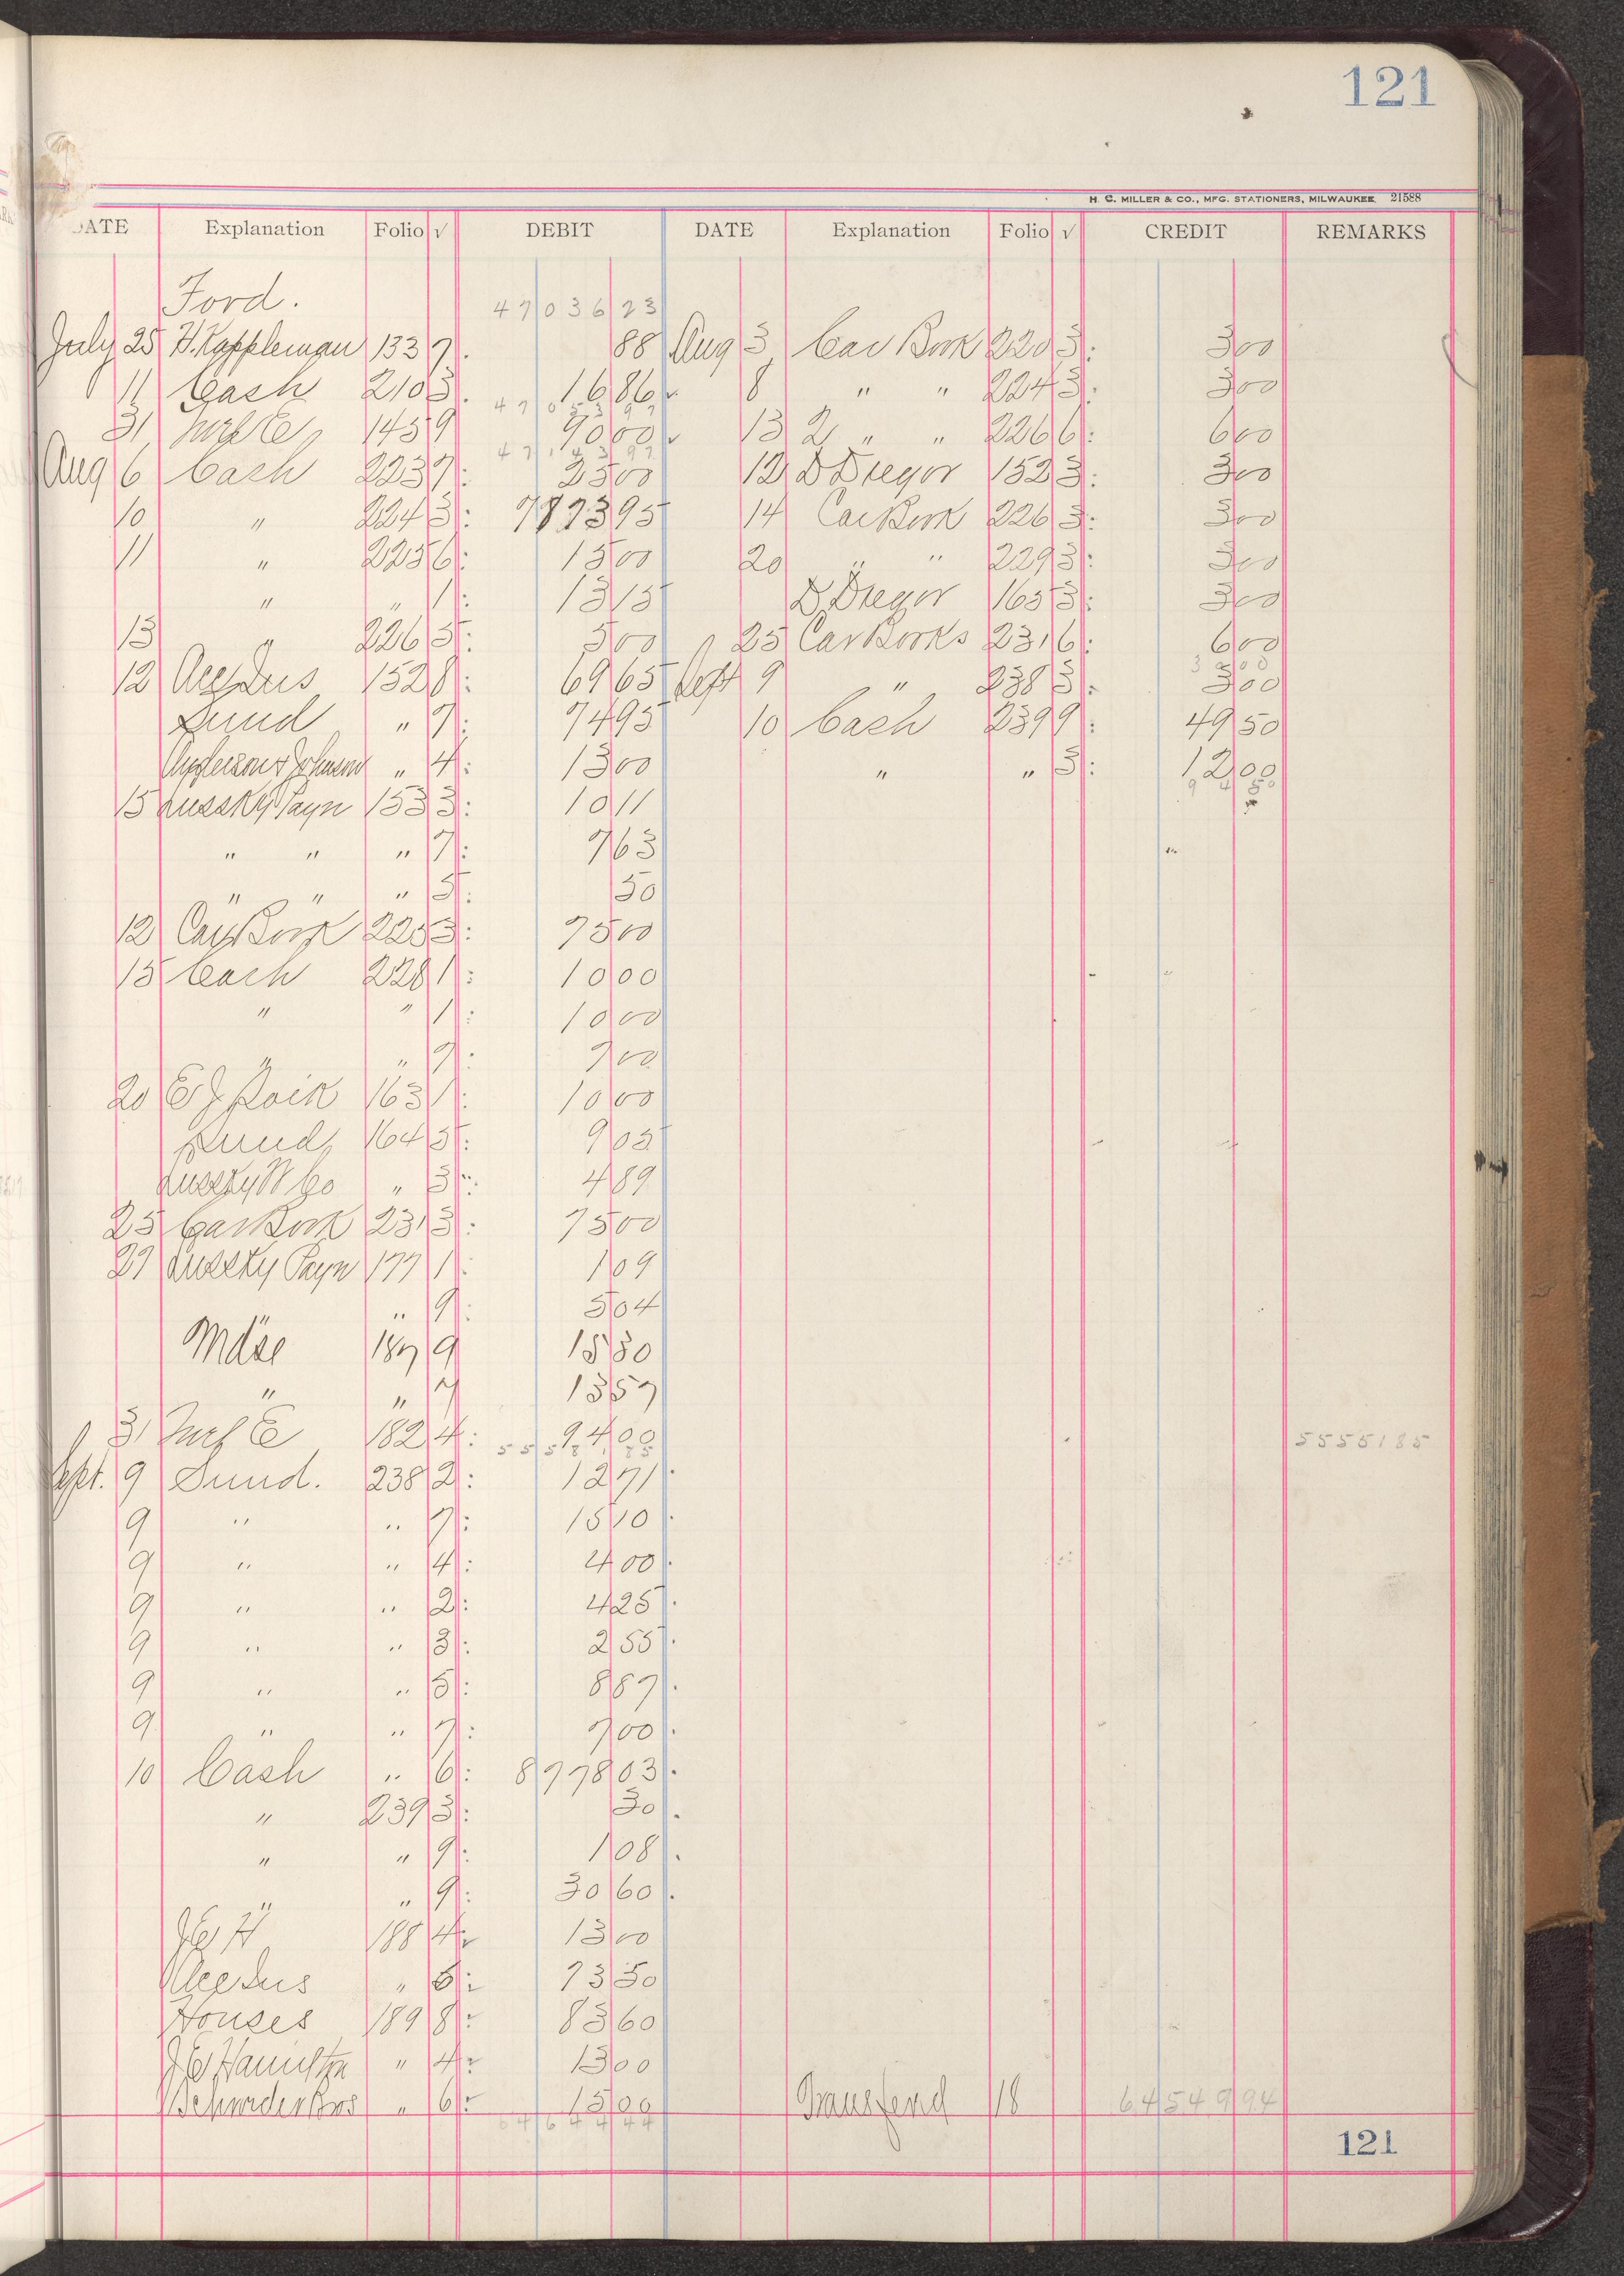 121
H. C. MILLER & CO., MFG. STATIONERS, MILWAUKEE 21588
DATE Explanation Folio √ DEBIT DATE Explanation Folio √ CREDIT REMARKS
Ford. 47036 23
July 25 H. Kappleman 133 7 88 Aug 3 Car Book 220 3 3 00
11 Cash 210 3 16 86 8 " " 224 3 3 00
47053 97
31 145 9 90 00 13 2 " " 226 6 6 00
47143 97
Aug 6 Cash 223 7 25 00 12 D Dregor 152 3 3 00
10 " 224 3 7873 95 14 Car Book 226 3 3 00
11 " 225 6 15 00 20 " " 229 3 3 00
" " 1 13 15 D. Dregor 165 3 3 00
13 " 226 5 5 00 25 Car Books 231 6 6 00
12 152 8 69 65 Sept 9 " 238 3 3 00
Sund " 7 74 95 10 Cash 239 9 49 50
Anderson & Johnson " 4 13 00 " " 3 12 00
94 50
15 Lussky Payn 153 3 10 11
" " " 7 7 63
" " " 5 50
12 Car Book 225 3 75 00
15 Cash 228 1 10 00
" " 1 10 00
" " 7 7 00
20 E J 163 1 10 00
Sund 164 5 9 05
Lussky W Co " 3 4 89
25 Car Book 231 3 75 00
27 Lussky Payn 177 1 1 09
" 9 5 04
Mdse 187 9 15 30
" " 7 13 57
31 182 4 94 00
55551 85 55551 85
Sept. 9 Sund. 238 2 12 71
9 " " 7 15 10
9 " " 4 4 00
9 " " 2 4 25
9 " " 3 2 55
9 " " 5 8 87
9 " " 7 7 00
10 Cash " 6 8778 03
" 239 3 30
" " 9 1 08
" " 9 30 60
J C H 188 4 13 00
" 6 73 50
Houses 189 8 83 60
J C Hamilton " 4 13 00
Schroeder Bros " 6 15 00 Transferred 118 64549 94
64644 44
121